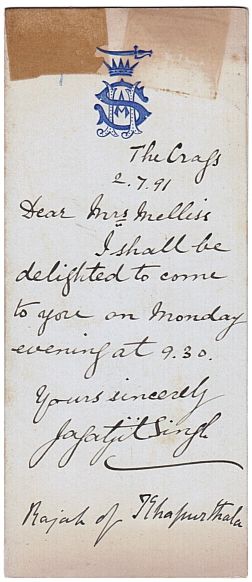 The Crags
2.7.91
Dear Mrs Melliss
I shall be
delighted to come
to you on Monday
evening at 9.30.
Yours sincerely
Jagatjit Singh
Rajah of Khapurthala